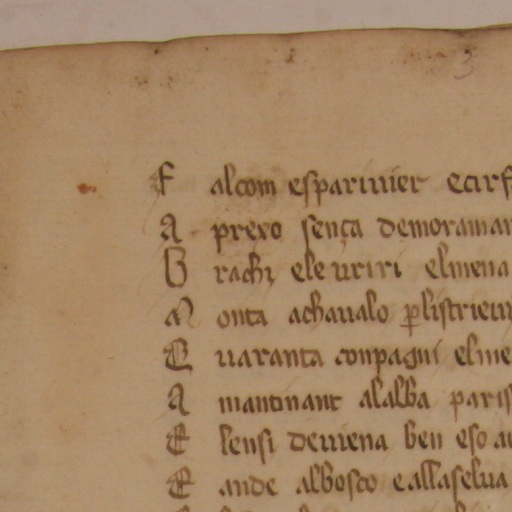 3
F alcom espariuier ecirf
A preso sença demoraman
B rachi eleuriri elmena
M onta achaualo plistrieiu
Q uaranta conpagni elme
A mantinant alalba paris
E lensi deuiena ben eso au
E ande albosco eallaselua